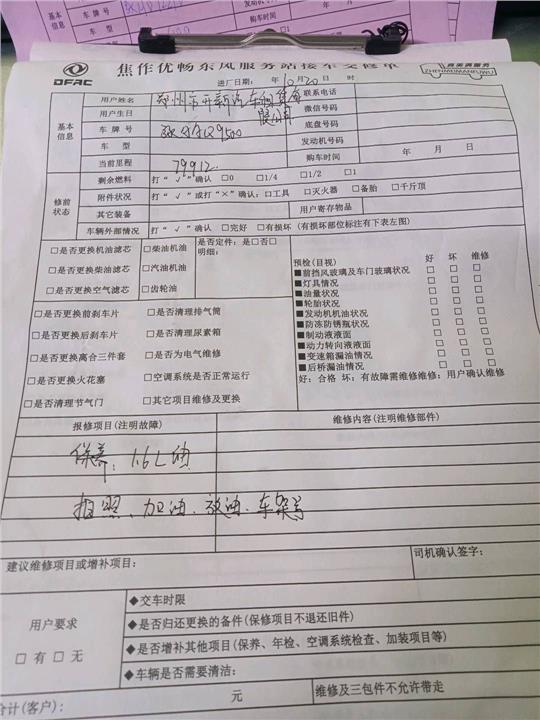 DFAC
焦作优畅东风服务站接车交修单
ZHENMEIMANFUWU
进厂日期: 年 10 月 20 日 时
基本信息
用户姓名
股份公司
联系电话
用户生日
微信号码
车 牌 号
Q9500
底盘号码
车 型
发动机号码
当前里程 79912
购车时间 年 月 日
修前状态
剩余燃料 打“√”确认 □0 □1/4 □1/2 □1
附件状况 打“√”或打“×”确认:□工具 □灭火器 □备胎 □千斤顶
其它装备
用户寄存物品
车辆外部情况 打“√”确认 □完好 □有损坏 (有损坏部位标注有下表左图)
□是否更换机油滤芯 □柴油机油
□是否更换柴油滤芯 □汽油机油
□是否更换空气滤芯 □齿轮油
是否定件: 是□否□
明细:
□是否更换前刹车片 □是否清理排气筒
□是否更换后刹车片 □是否清理尿素箱
□是否更换离合三件套 □是否为电气维修
□是否更换火花塞 □空调系统是否正常运行
□是否清理节气门 □其它项目维修及更换
预检(目视) 好 坏 维修
■前挡风玻璃及车门玻璃状况 □ □ □
■灯具情况 □ □ □
■油量状况 □ □ □
■轮胎状况 □ □ □
■发动机机油情况 □ □ □
■防冻防锈瓶状况 □ □ □
■制动液液面 □ □ □
■动力转向液液面 □ □ □
■变速箱漏油情况 □ □ □
■后桥漏油情况 □ □ □
好: 合格 坏: 有故障需维修维修: 用户确认维修
报修项目(注明故障)
维修内容(注明维修部件)
保养: 16L油
拍照、加油、放油、车架号
建议维修项目或增补项目:
司机确认签字:
用户要求
□ 有 □ 无
◆交车时限
◆是否归还更换的备件(保修项目不退还旧件)
◆是否增补其他项目(保养、年检、空调系统检查、加装项目等)
◆车辆是否需要清洁:
合计(客户): 元
维修及三包件不允许带走